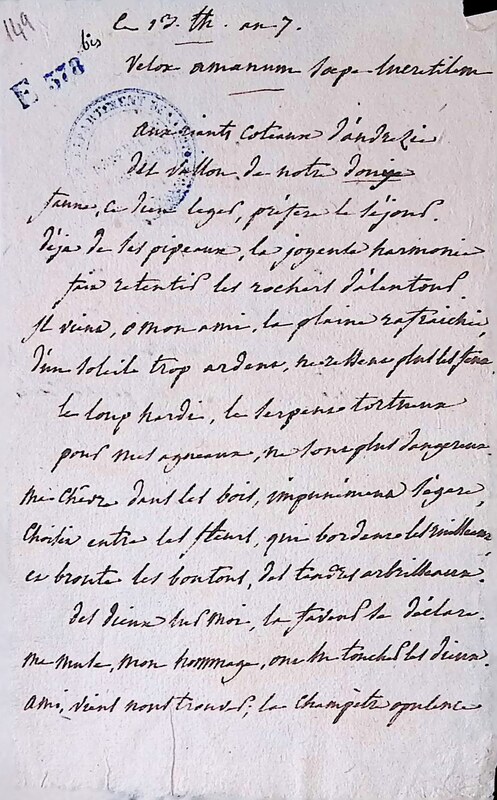 149
bis
E 578
le 13. th. an 7.
Velox amœnum sœpe lucretilem
aux riants coteaux d'andrezie
des vallon de notre
faune, ce dieu leger, préfere le séjour.
déja de ses pipeaux, la joyeuse harmonie
fait retentir les rochers d'alentour
Il vient, o mon ami, la plaine rafraichie
d'un soleile trop ardent, ne ressent plus les feux.
le loup hardi, le serpent tortueux
pour mes agneaux, ne sont plus dangereux.
ma chêvre dans les bois, impunément s'égare,
choisit entre les fleurs, qui bordent les ruisseaux
et broute les boutons, des tendres arbrisseaux.
des dieux sur moi, la faveur se déclare.
ma muse, mon hommage, ont su toucher les dieux.
ami, vient nous trouver; la champêtre opulence